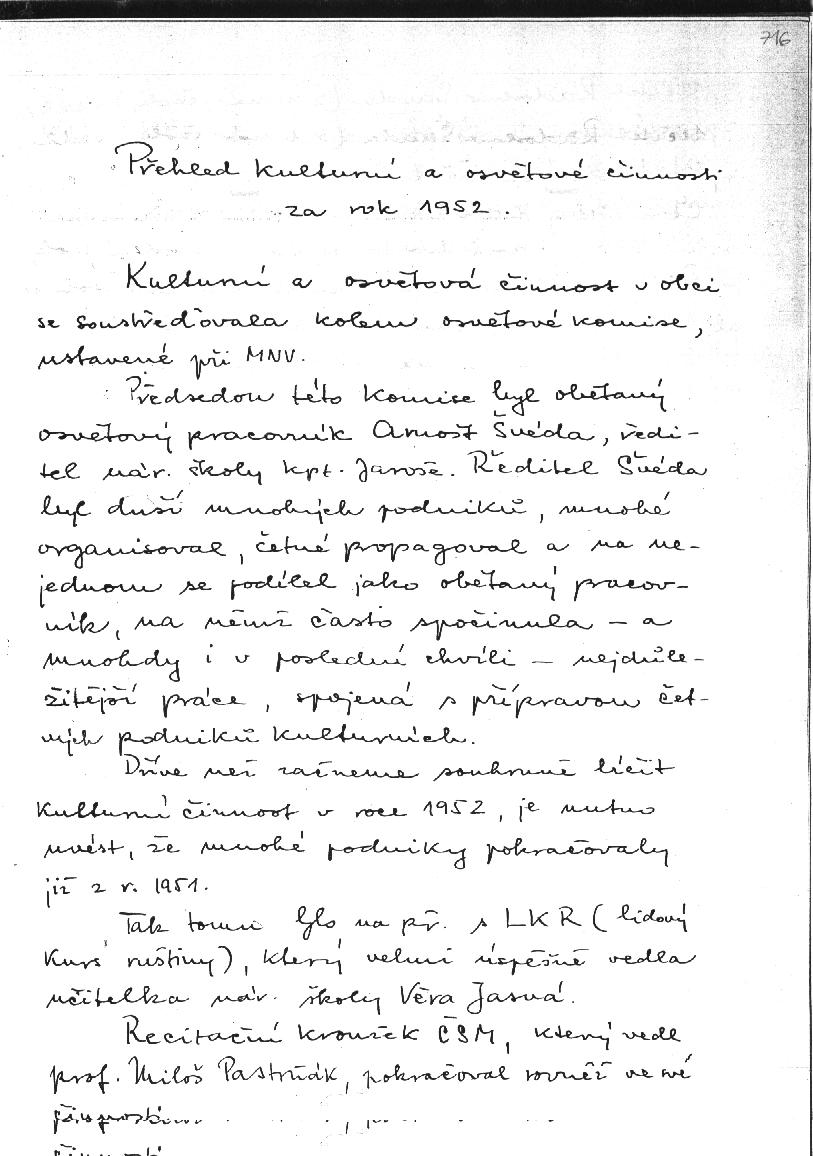 716
Přehled kulturní a osvětové činnosti
za rok 1952.
Kulturní a osvětová činnost v obci
se soustřeďovala kolem osvětové komise,
ustavené při MNV.
Předsedou této komise byl obětaný
osvětový pracovník Arnošt Švéda, ředi-
tel nár. školy kpt. Jaroše. Ředitel Švéda
byl duší mnohých podniků, mnohé
organisoval, četné propagoval a na ne-
jednom se podílel jako obětaný pracov-
ník, na němž často spočinula - a
mnohdy i v poslední chvíli - nejdůle-
žitější práce, spojená s přípravou čet-
ných podniků kulturních.
Dříve než začneme souhrnně líčit
kulturní činnost v roce 1952, je nutno
uvést, že mnohé podniky pokračovaly
již z r. 1951.
Tak tomu bylo na př. s LKR (lidový
kurs ruštiny), který velmi úspěšně vedla
učitelka nár. školy Věra Jasná.
Recitační kroužek ČSM, který vedl
prof. Miloš Pastrňák, pokračoval rovněž ve své
činnosti